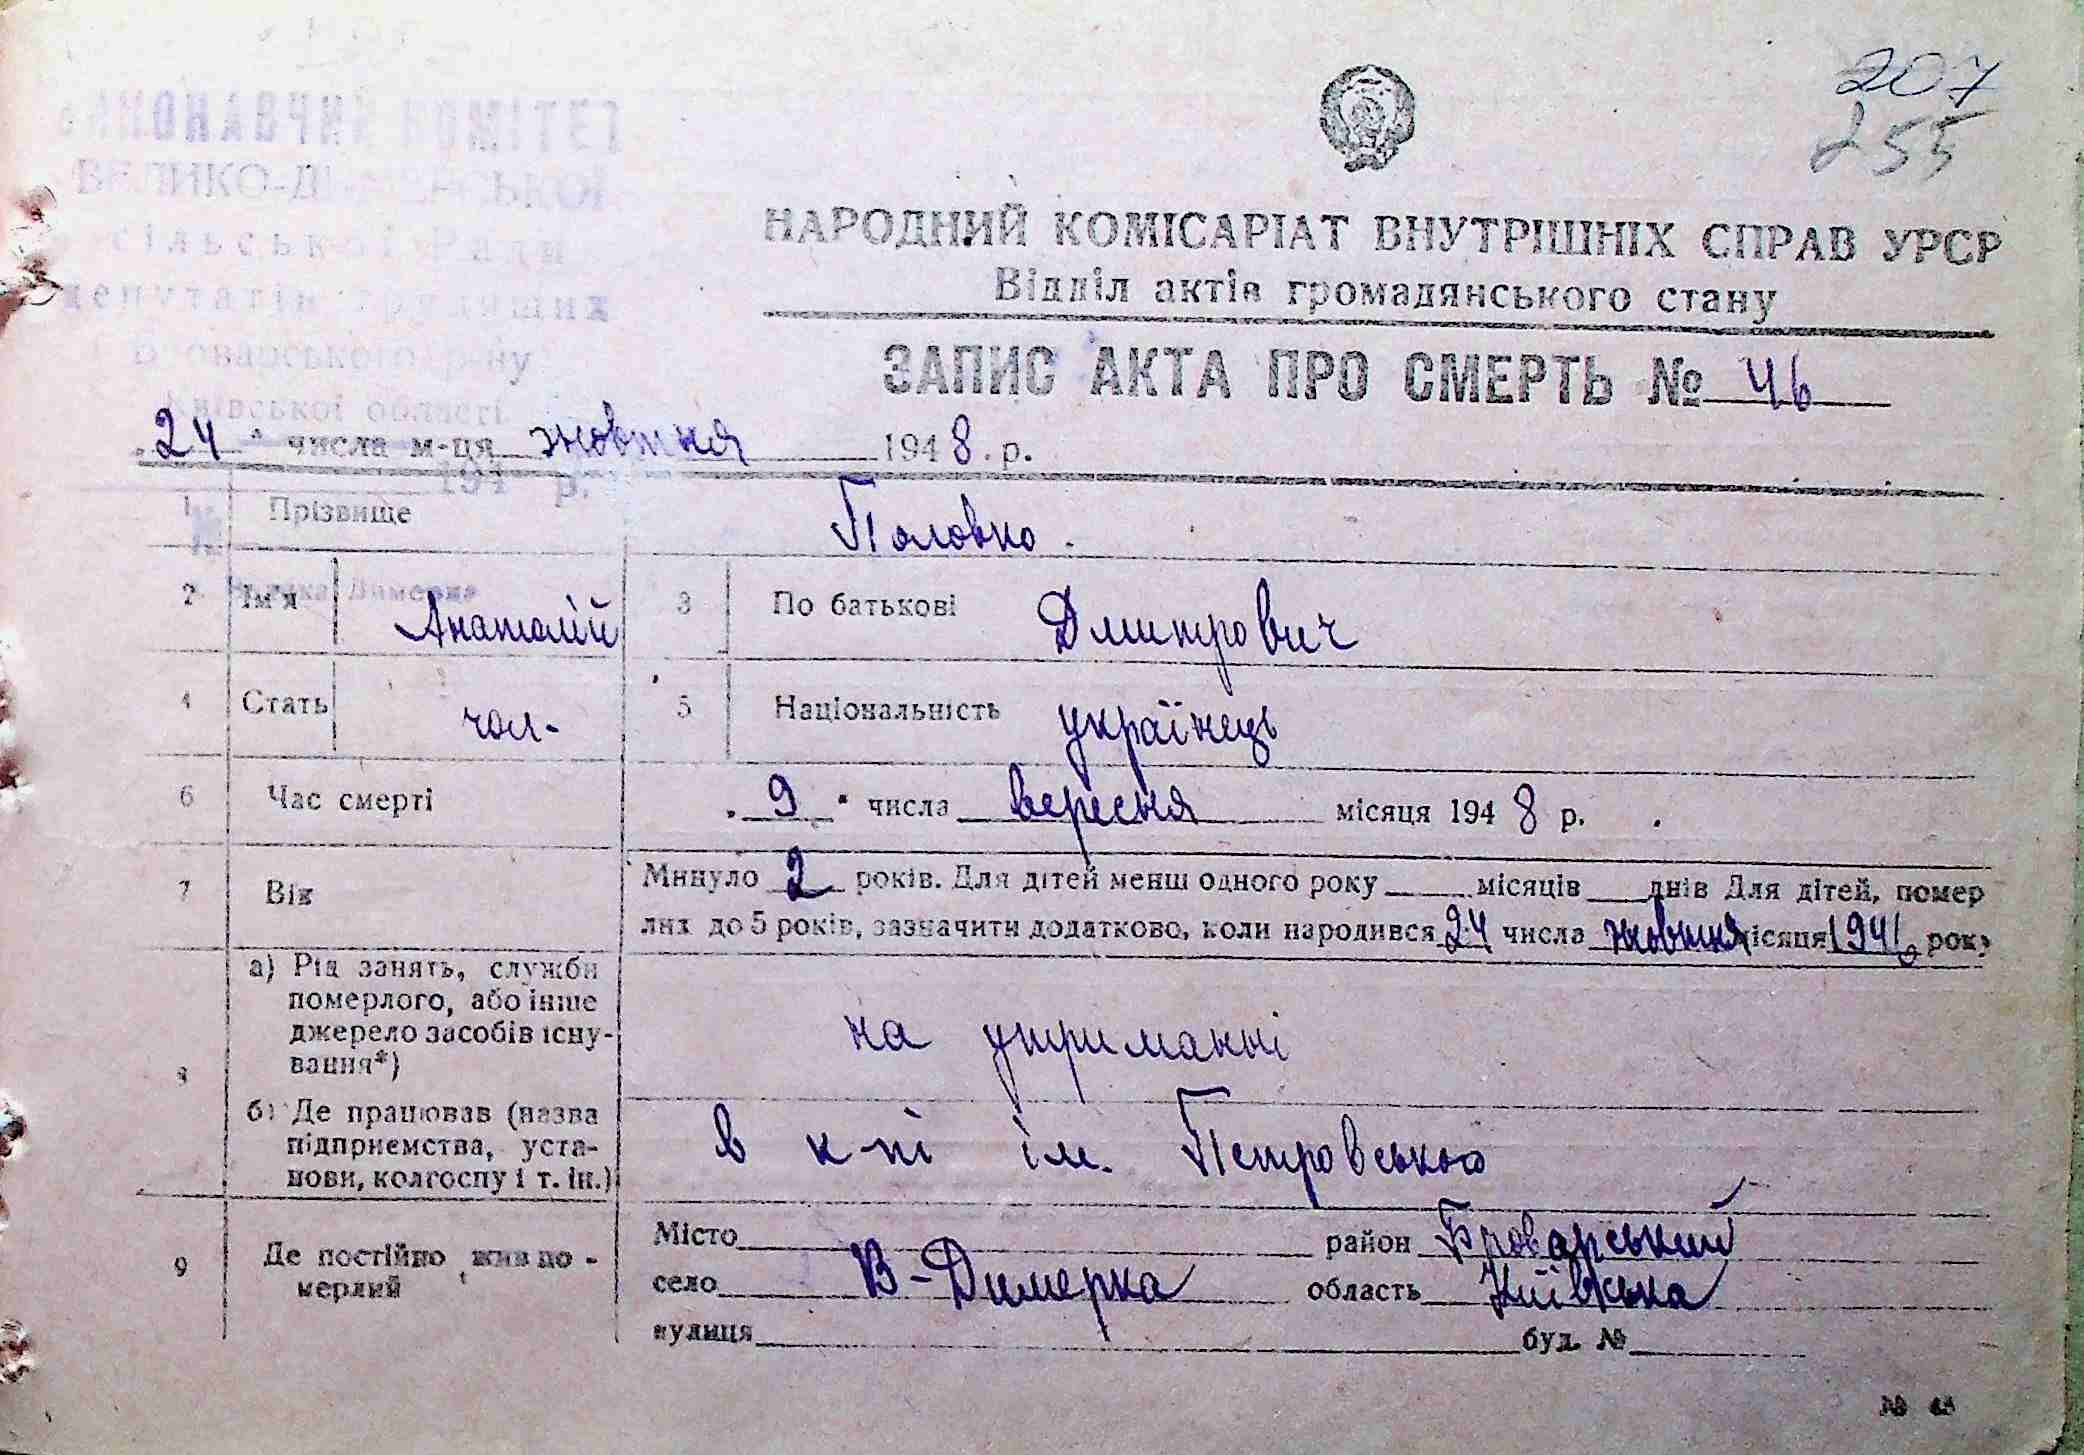 207
255
ВИКОНАВЧИЙ КОМІТЕТ
ВЕЛИКО-ДИМЕРСЬКОЇ
сільської Ради
депутатів трудящих
Броварського р-ну
Київської області
194 р.
№
Велика Димерка
НАРОДНИЙ КОМІСАРІАТ ВНУТРІШНІХ СПРАВ УРСР
Відділ актів громадянського стану
ЗАПИС АКТА ПРО СМЕРТЬ № 46
„24“ числа м-ця жовтня 1948. р.
1 Прізвище Половко.
2 Ім'я Анатолій 3 По батькові Дмитрович
4 Стать чол. 5 Національність українець
6 Час смерті „9“ числа вересня місяця 1948 р.
7 Вік Минуло 2 років. Для дітей менш одного року місяців днів Для дітей, помер
лих до 5 років, зазначити додатково, коли народився 24 числа жовтня місяця 1946 року
8 а) Рід занять, служби
померлого, або інше
джерело засобів існу-
вання*)
на утриманні
б) Де працював (назва
підприємства, уста-
нови, колгоспу і т. ін.)
в к-пі ім. Петровського
9 Де постійно жив по-
мерлий
Місто район Броварський
село В-Димерка область Київська
вулиця буд. №